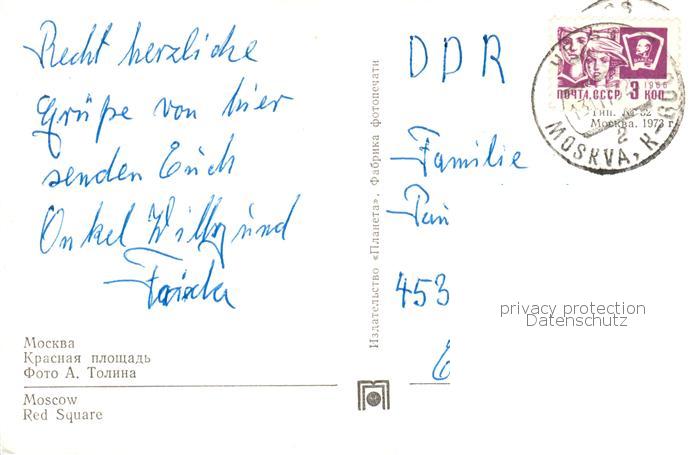 Recht herzliche
Grüße von hier
senden Euch
Onkel Willy und
Frieda
Москва
Красная площадь
Фото А. Толина
Moscow
Red Square
Издательство «Планета». Фабрика фотопечати
DDR
Familie
453
privacy protection
Datenschutz
1966
ПОЧТА СССР 3 КОП
Тип. № 32
Москва. 1973 г.
2
MOSKVA,